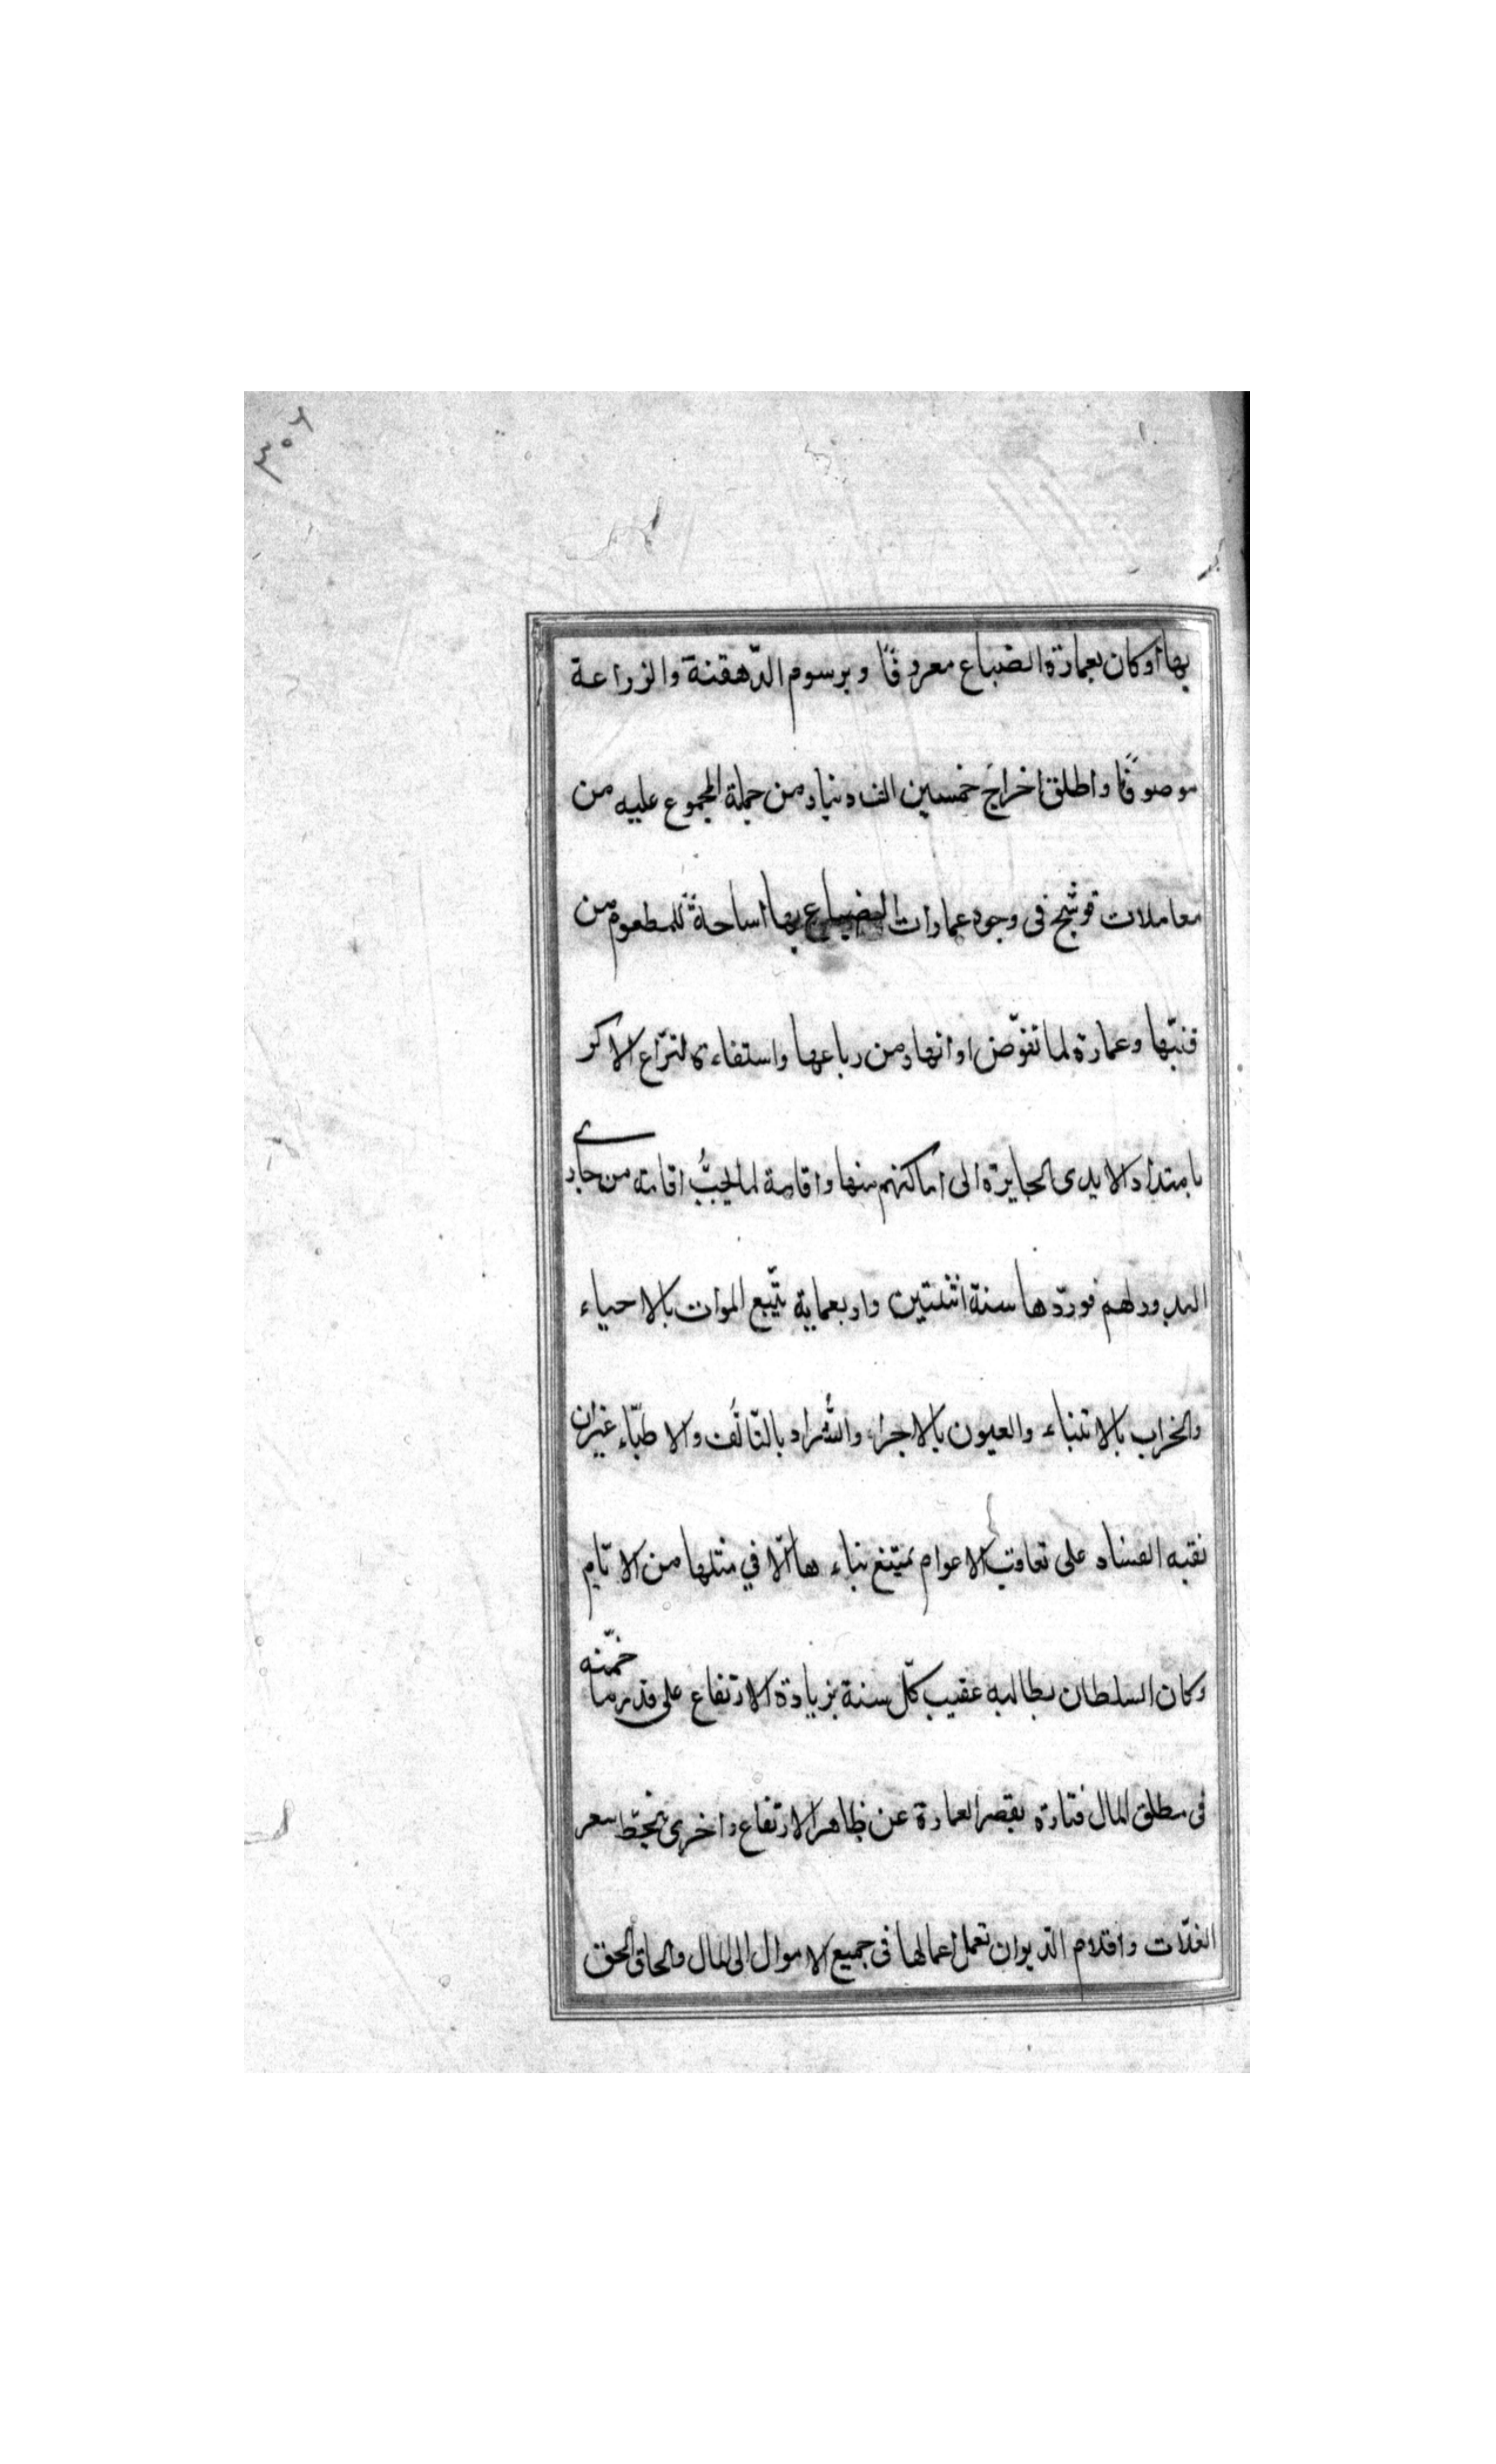 ٣٠٦
بها أو كان بعمارة الضياع معروفًا وبرسوم الدّهقنة والزراعة
موصوفًا واطلق اخراجَ خمسين الف دينار من جملة المجموع عليه من
معاملات قوشج فى وجوه عمارات الضياع بها اساحةً للمطعوم من
قنيّها وعمارة لما تقوّض او انهار من رباعها واستفاءة لنزّاع الاكر
بامتداد الايدى الجايرة الى اماكنهم منها واقامة لما يجبُ اقامته من جارى
البدور لهم فوردها سنة اثنتين واربعماية يتّبع الموات بالاحياء
والخراب بالابتناء والعيون بالاجراء والشّراد بالتالّف والاطبّاء غير ان
نقبه الفساد على تعاقب الاعوام يمتنع بناءها الّا في مثلها من الايّام
وكان السلطان يطالبه عقيب كلّ سنة بزيادة الارتفاع على قدر ما خمّنه
فى مطلق المال فتارة يقصر العمارة عن ظاهر الارتفاع واخرى ينحطّ سعر
الغلّات واقلام الدّيوان تعمل اعمالها فى جميع الاموال الى المال والحاق الحق